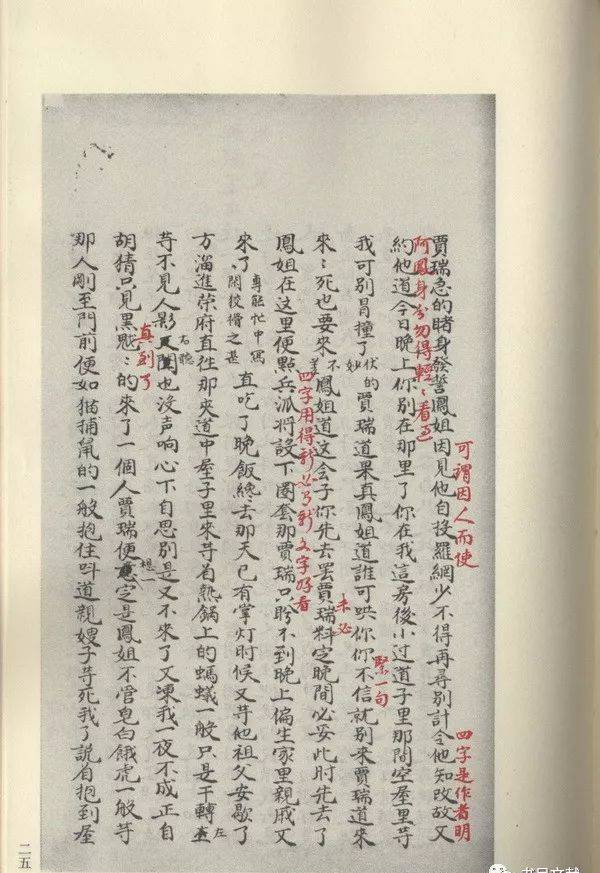 賈瑞急的賭身發誓鳳姐因見他自投羅網少不得再尋別計令他知改故又
可謂因人而使
四字是作者明
阿鳳身分勿得輕〻看過
約他道今日晚上你別在那里了你在我這房後小过道子里那間空屋里等
我可別冒撞了伏的妙賈瑞道果真鳳姐道誰可哄你你不信就別来賈瑞道来
緊一句
来〻死也要来不差鳳姐道這会子你先去罷賈瑞料定晚間必妥此时先去了
未必
四字用得新必有新文字好看
鳳姐在这里便點兵派将設下圈套那賈瑞只盼不到晚上偏生家里親戚又
来了專能忙中寫閑狡猾之甚直吃了晚飯終去那天已有掌灯时候又等他祖父安歇了
方溜進荣府直往那夾道中屋子里来等着热锅上的螞蟻一般只是干轉左
等不見人影右聽也没声响心下自思別是又不来了又凍我一夜不成正自
真到了
胡猜只見黑魆〻的来了一個人賈瑞便想一定是鳳姐不管皂白餓虎一般等
那人剛至門前便如猫捕鼠的一般抱住叫道親嫂子等死我了說着抱到屋
二五
书目文献